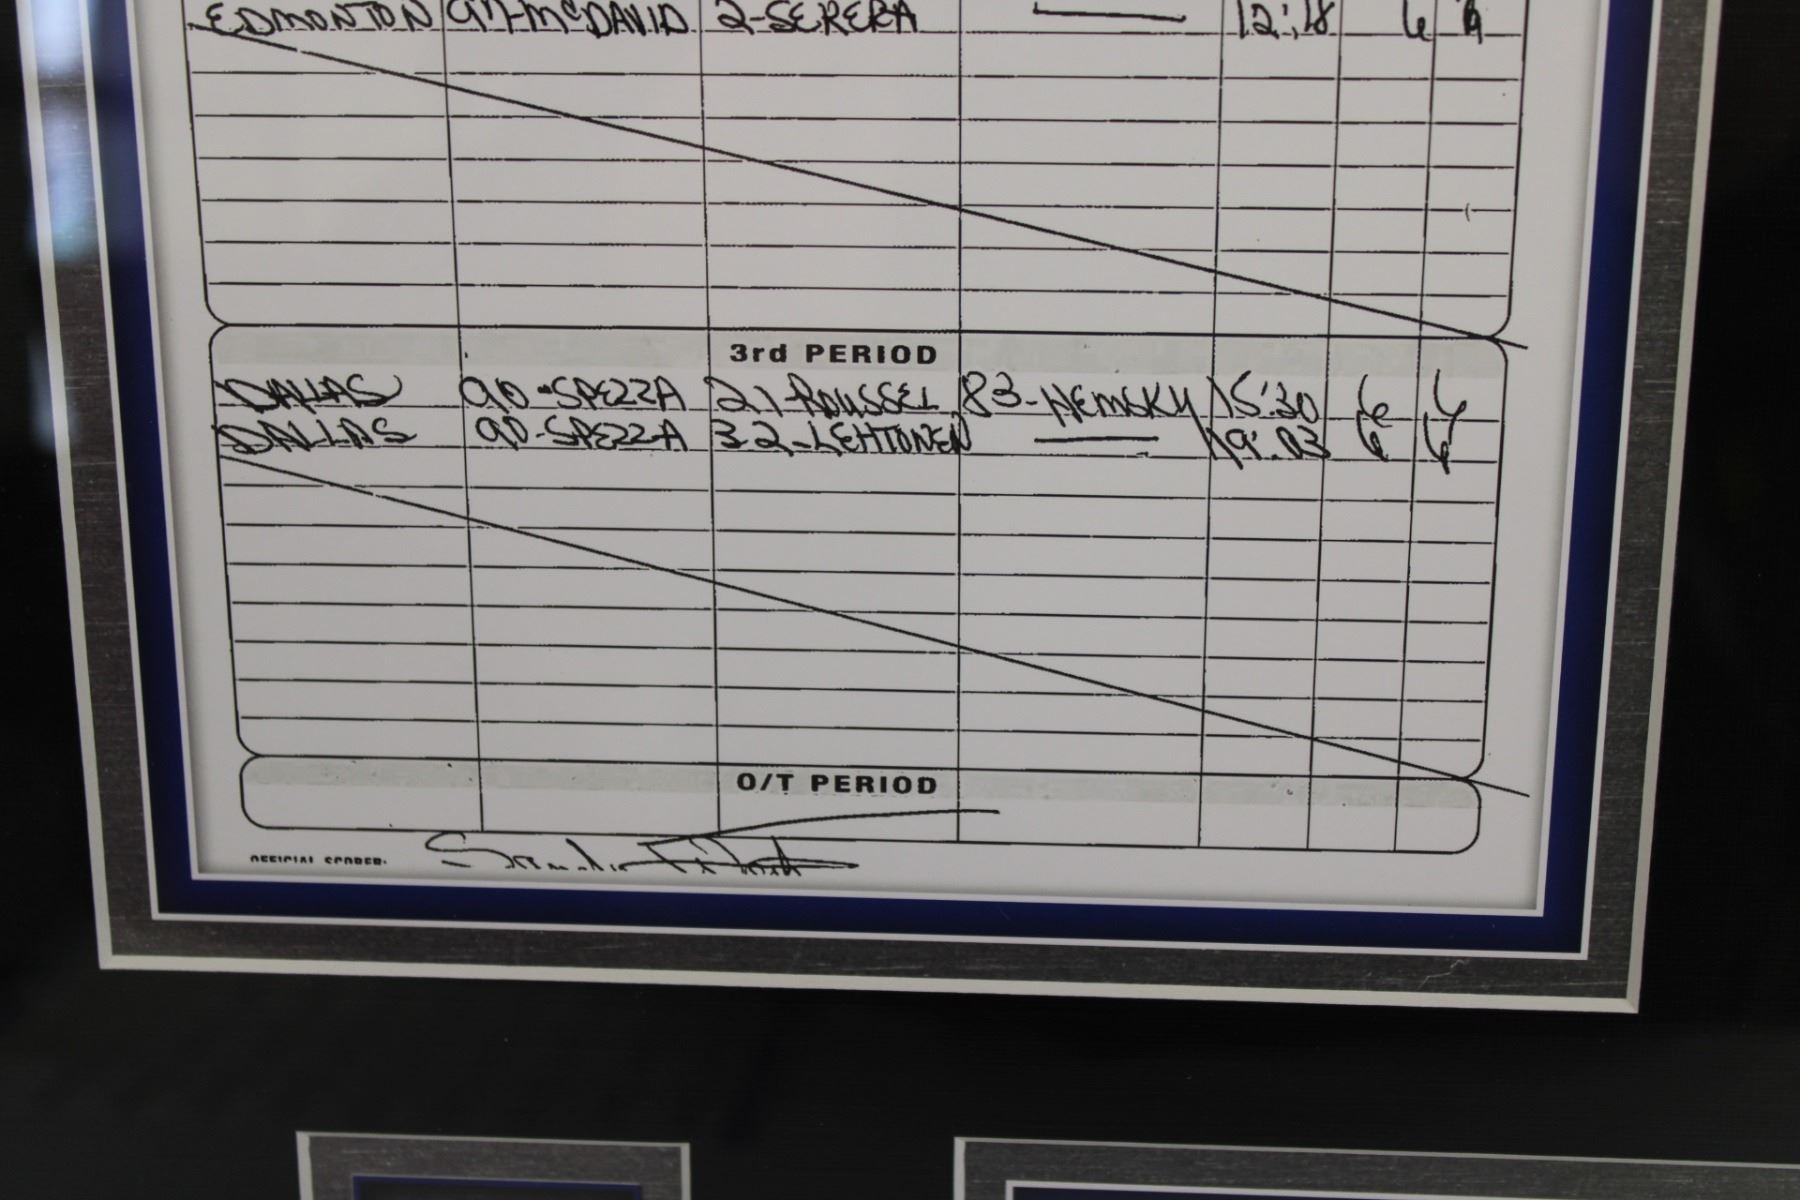 EDMONTON 97-McDAVID 2-SEKERA — 12:18 6 6
3rd PERIOD
DALLAS 90-SPEZZA 21-ROUSSEL 83-HEMSKY 15:30 6 6
DALLAS 90-SPEZZA 32-LEHTONEN — 19:03 6 6
O/T PERIOD
OFFICIAL SCORER: